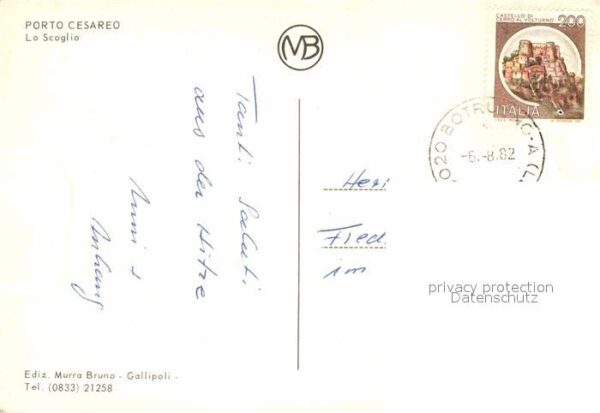 PORTO CESAREO
Lo Scoglio
MB
CASTELLO DI
CERRO AL VOLTURNO
200
ITALIA
-6.-8.82
Tanti Saluti
aus der Hitze
Anni +
Anhang
Heri
Fied
im
privacy protection
Datenschutz
Ediz. Murra Bruno - Gallipoli -
Tel. (0833) 21258